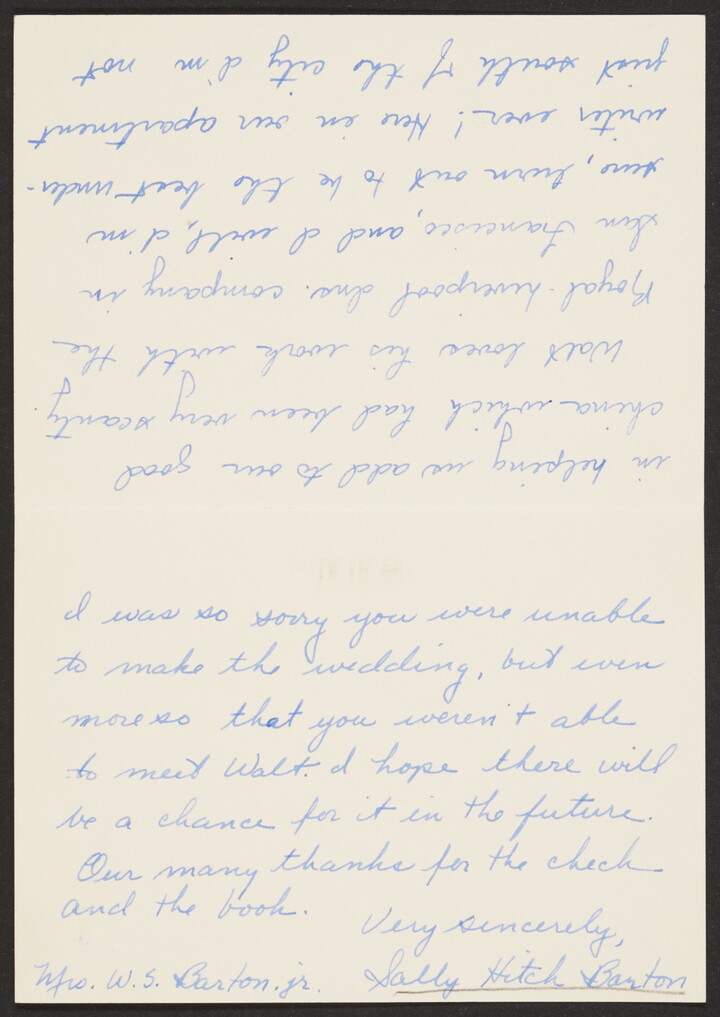 in helping us add to our good
china which had been very scanty.
Walt loves his work with the
Royal-Liverpool Ins. company in
San Francisco, and I will, I'm
sure, turn out to be the best under-
writer ever! Here in our apartment
just south of the city I'm not
I was so sorry you were unable
to make the wedding, but even
more so that you weren't able
to meet Walt. I hope there will
be a chance for it in the future.
Our many thanks for the check
and the book.
Very sincerely,
Mrs. W. S. Barton. jr. Sally Hitch Barton